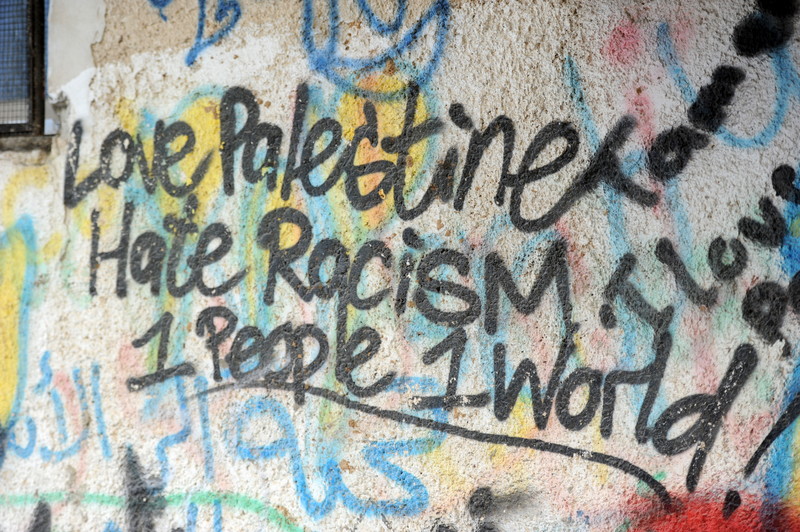 Love Palestine
Hate Racism
1 People 1 World!
I Love